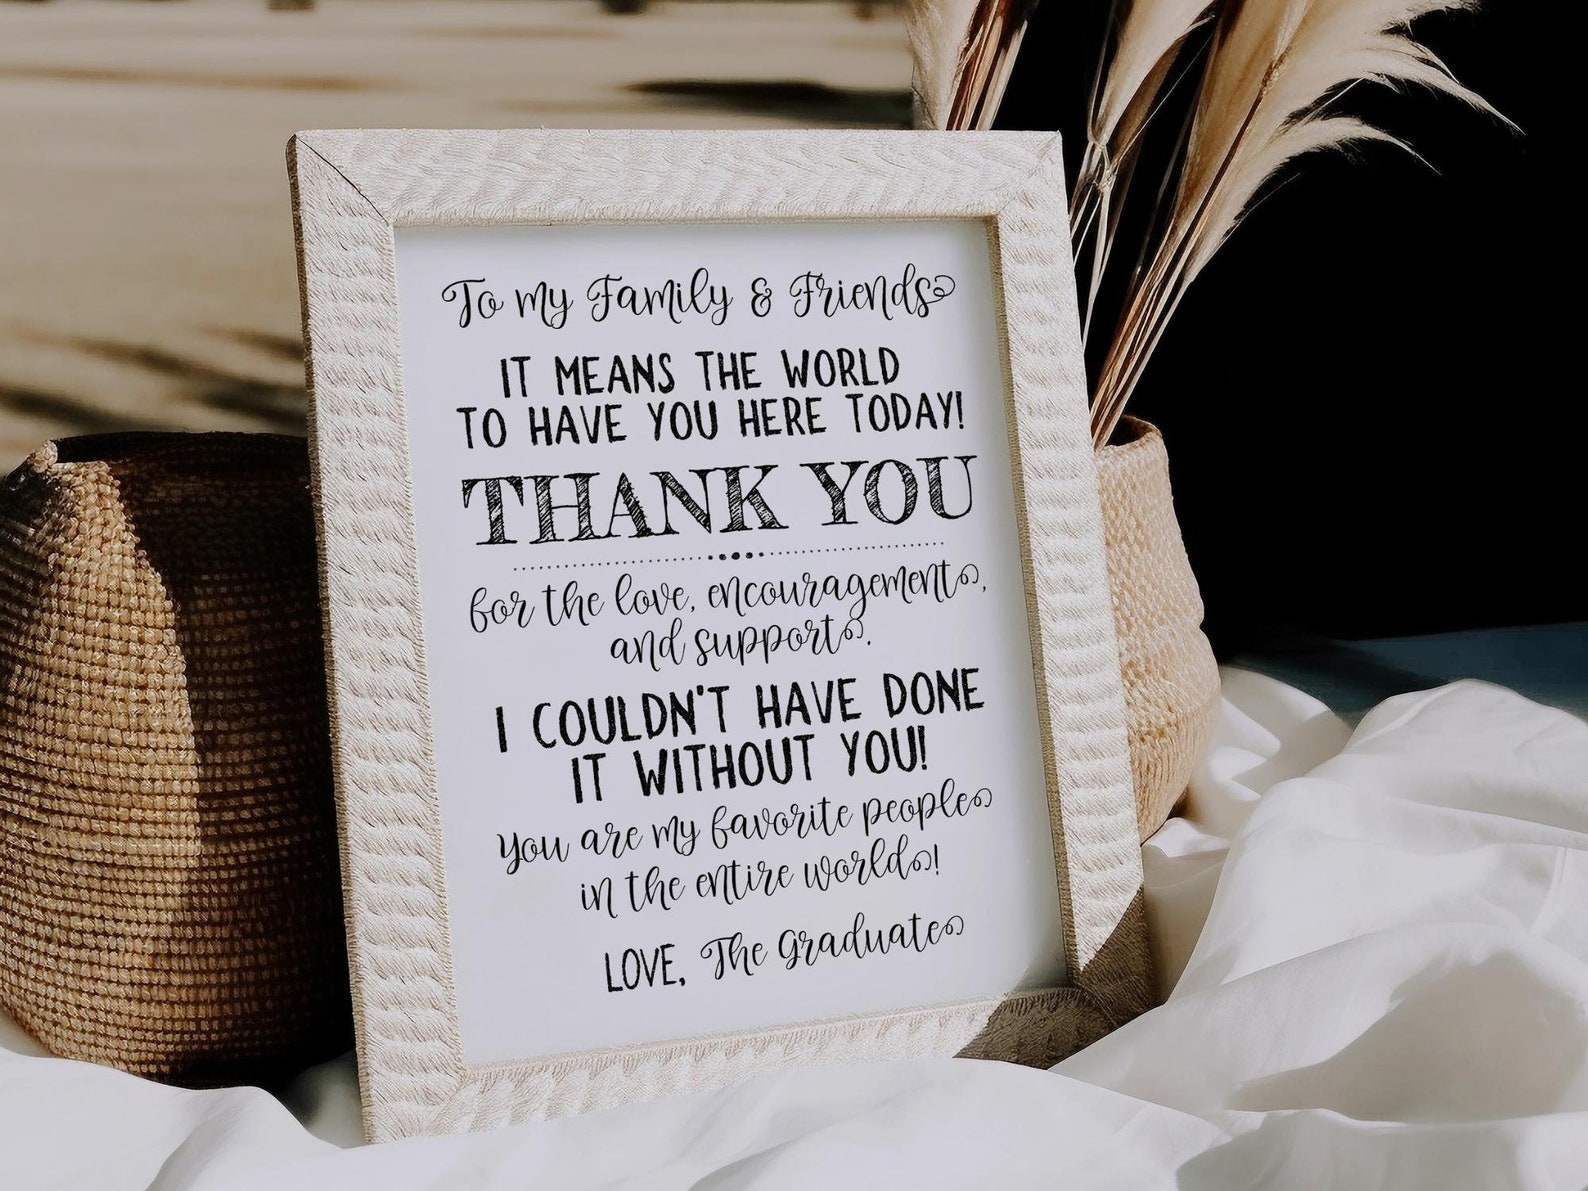 To my Family & Friends
IT MEANS THE WORLD
TO HAVE YOU HERE TODAY!
THANK YOU
for the love, encouragement,
and support.
I COULDN'T HAVE DONE
IT WITHOUT YOU!
You are my favorite people
in the entire world!
LOVE, The Graduate